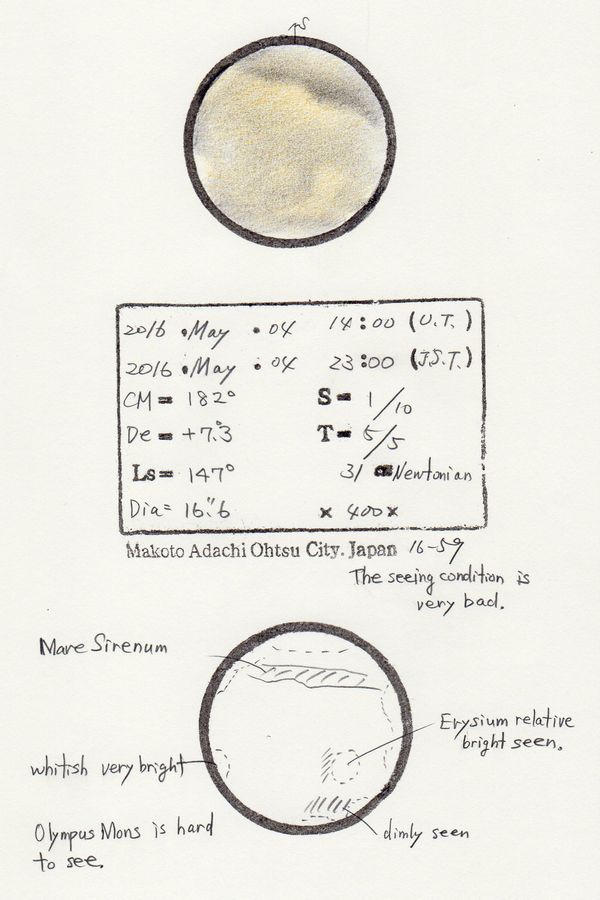 S
2016 . May . 04 14:00 (U.T.)
2016 . May . 04 23:00 (J.S.T.)
CM= 182° S= 1/10
De= +7.°3 T= 5/5
Ls= 147° 31 cm Newtonian
Dia= 16."6 × 400×
Makoto Adachi Ohtsu City. Japan 16-59
The seeing condition is
very bad.
Mare Sirenum
Erysium relative
bright seen.
whitish very bright
Olympus Mons is hard
to see.
dimly seen